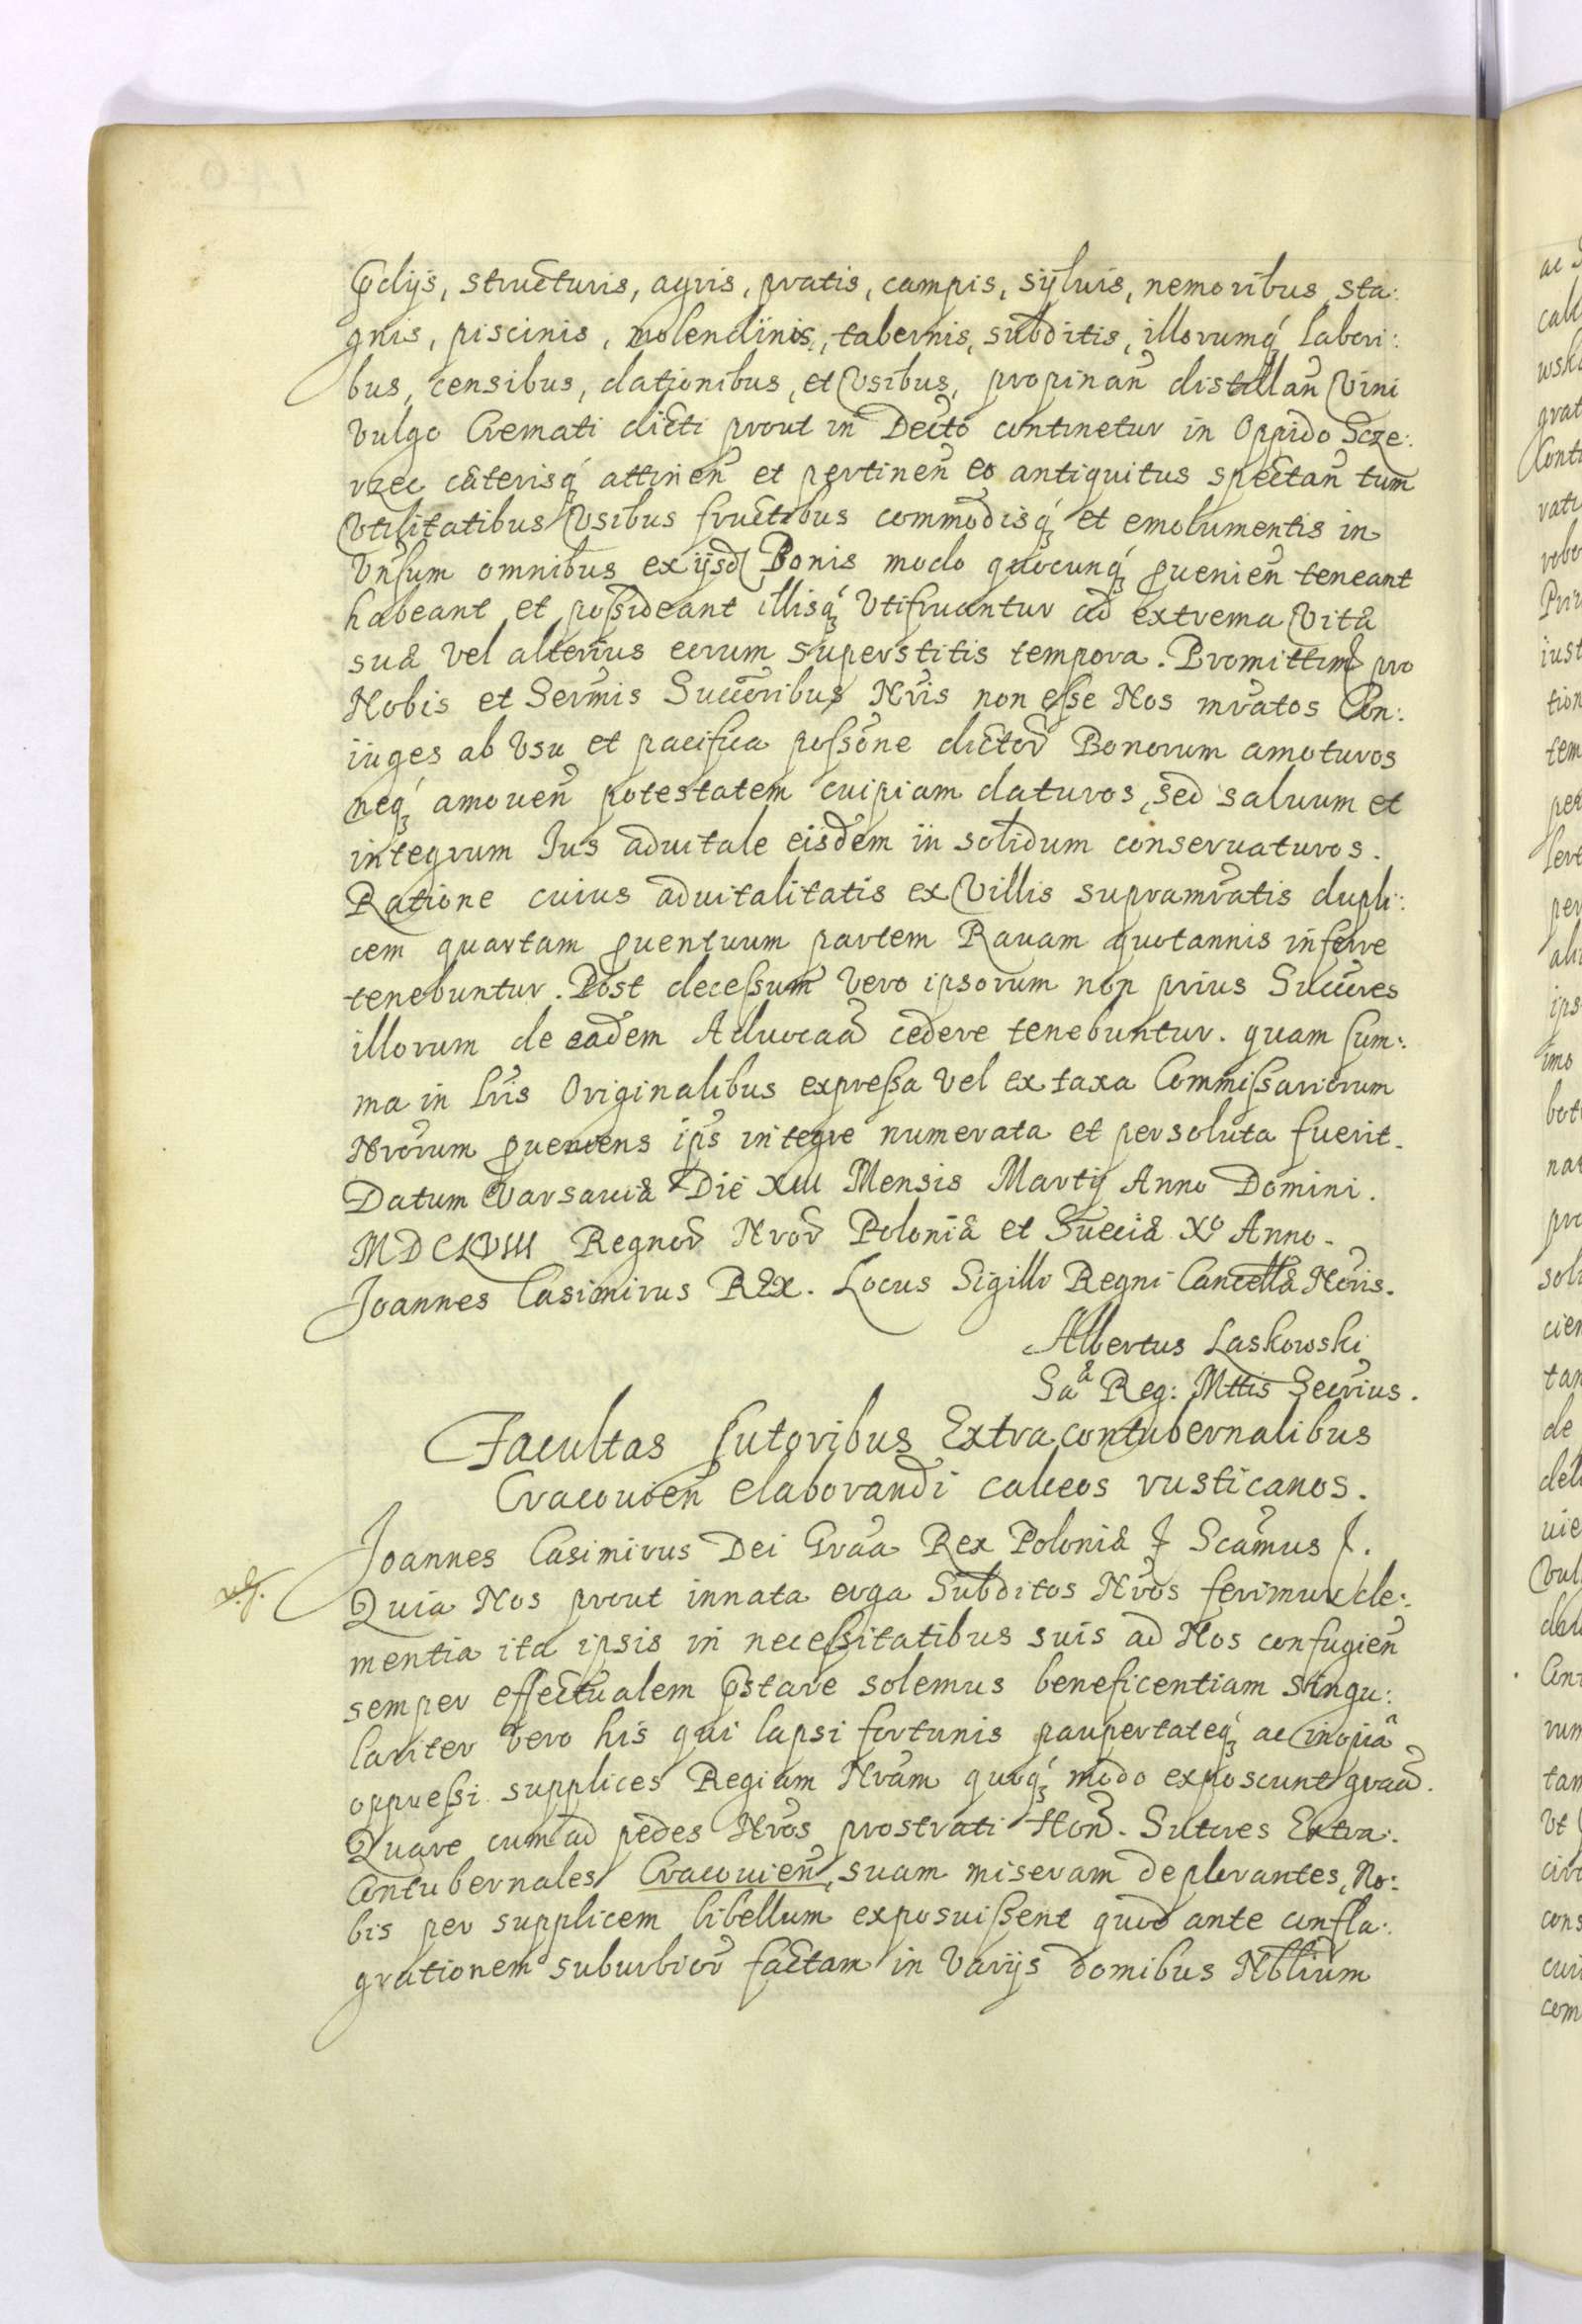 Prædijs, structuris, agris, pratis, campis, sijluis, nemoribus, sta:
gnis, piscinis, molendinis, tabernis, subditis, illorumq́ꝫ labori:
bus, censibus, dationibus, et Vsibus, propinan̄ distillan̄ Vini
Vulgo Cremati dicti prout in Decto continetur in Oppido Scze:
rzec cæterisq́ꝫ attinen̄ et pertinen̄ eo antiquitus spectan̄ tum
Vtilitatibus Vsibus fructibus commodisq́ꝫ et emolumentis in
Vn̄sum omnibus ex ijsd Bonis modo quocunq́ꝫ ꝓuenien̄ teneant
habeant et possideant illisq́ꝫ Vtifruantur ad extrema Vitæ
suæ Vel alterius eorum superstitis tempora. Promittimꝰ pro
Nobis et Sermis Succoribus Nris non esse Nos mratos Con:
iuges ab Vsu et pacifica possone dictor̄ Bonorum amoturos
neq́ꝫ amouen̄ potestatem cuipiam daturos, sed saluum et
integrum Ius aduitale eisdem in solidum conseruaturos.
Ratione cuius aduitalitatis ex Villis supramratis dupli:
cem quartam ꝓuentuum partem Rauam quotannis inferre
tenebuntur. Post decessum Vero ipsorum non prius Succres
illorum de eadem Aduocaa cedere tenebuntur. quam sum:
ma in Lris Originalibus expressa Vel ex taxa Commissariorum
Nrorum ꝓueniens ip̄s integre numerata et persoluta fuerit.
Datum Varsauiæ Die XIII Mensis Martij Anno Domini.
MDCLVIII Regnor̄ Nror̄ Poloniæ et Sueciæ Xº Anno.
Joannes Casimirus REX. Locus Sigilli Regni Cancellæ Noris.
Albertus Laskowski
Saæ Reg: Mttis Secrius.
Facultas sutoribus Extracontubernalibus
Cracouien̄ elaborandi calceos rusticanos.
Joannes Casimirus Dei Graa Rex Poloniæ ꝭ Scamus ꝭ.
Quia Nos prout innata erga Subditos Nros ferimur cle:
mentia ita ipsis in necessitatibus suis ad Nos confugien̄
semper effectualem Præstare solemus beneficentiam singu:
lariter Vero his qui lapsi fortunis paupertateq́ꝫ ac inopiâ
oppressi supplices Regiam Nram quoq́ꝫ modo exposcunt graā.
Quare cum ad pedes Nros prostrati Hon̄. Sutores Extra:
contubernales Cracouien̄, suam miseram deplorantes, No:
bis per supplicem libellum exposuissent quod ante confla:
grationem suburbior̄ factam in Varijs domibus Nblium